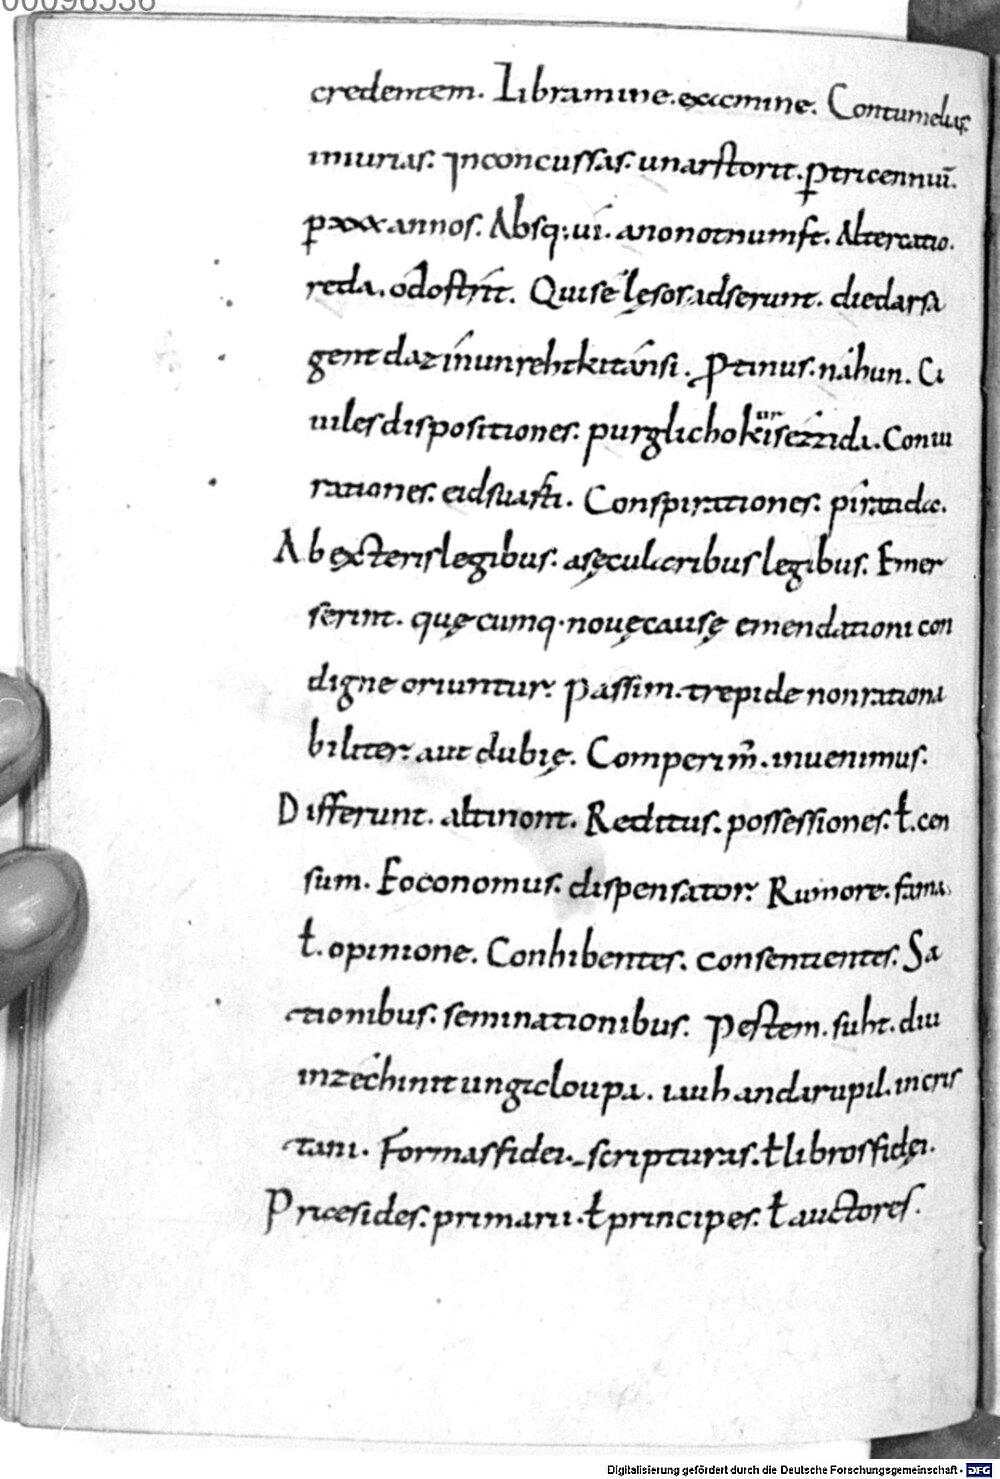 00096536
credentem. Libramine. examine. Contumelias.
iniurias. Inconcussas. unarstorit. ꝑtricennuī.
ꝑxxx annos. Absq; ui. anonotnumft. Altercatio.
reda. odostrit. Quise lęsos adserunt. diedarsa
gent daz inunrehtkitansi. Ptinus. nahun. Ci
uiles dispositiones. purglicho kisezzida. Coniu
rationes. eidsuarti. Conspirationes. piratida.
Ab exteris legibus. asęcularibus legibus. Emer
serint. quęcumq. nouę causę emendationi con
digne oriuntur. Passim. trepide nonrationa
biliter. aut dubię. Comperim̄. inuenimus.
Differunt. altinont. Reditus. possessiones. ł. cen
sum. Eoconomus. dispensator. Rumore. fama.
ł. opinione. Conhibentes. consentientes. Sa
tionibus. seminationibus. Pestem. suht. diu
inzechinit ungiloupa. iuuhandarupil. incris
tani. Formas fidei. scripturas. ł libros fidęi.
Praesides. primarii. ł principes. ł auctores.
Digitalisierung gefördert durch die Deutsche Forschungsgemeinschaft - DFG